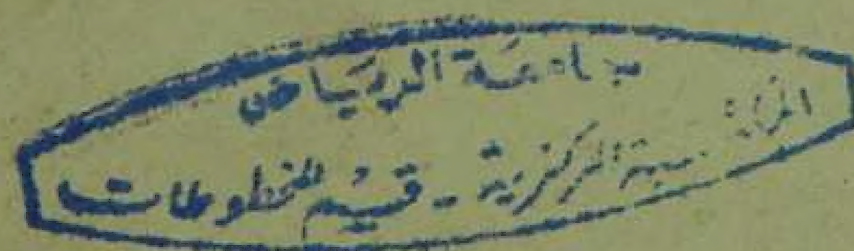 جامعة الرياض
المركزية - قسم المخطوطات